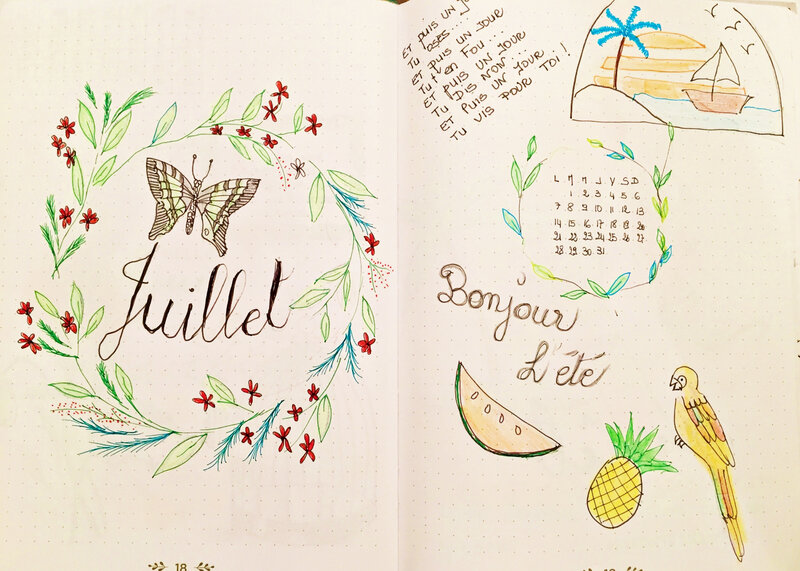 Juillet
18
ET PUIS UN JO
TU OSES...
ET PUIS UN JOUR
TU T'EN FOU...
ET PUIS UN JOUR
TU DIS NON...
ET PUIS UN JOUR
TU VIS POUR TOI!
L M M J V S D
1 2 3 4 5 6
7 8 9 10 11 12 13
14 15 16 17 18 19 20
21 22 23 24 25 26 27
28 29 30 31
Bonjour
L'été